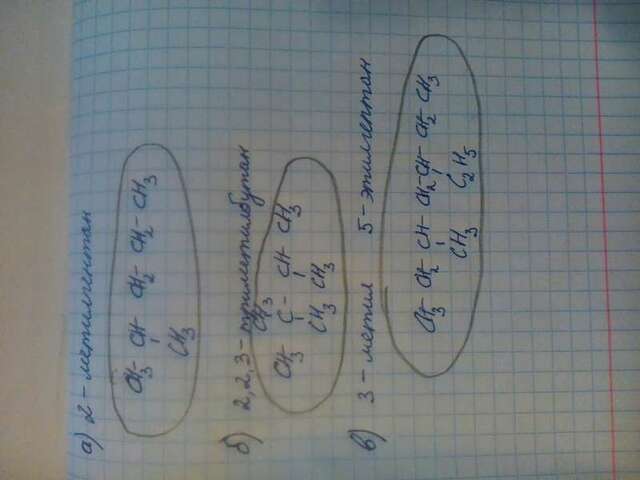 а) 2 - метилпентан
CH3 - CH - CH2 - CH2 - CH3
CH3
б) 2,2,3 - триметилбутан
CH3
CH3 - C - CH CH3
CH3 CH3
в) 3 - метил 5 - этилгептан
CH3 CH2 CH - CH2 CH - CH2 CH3
CH3 C2H5